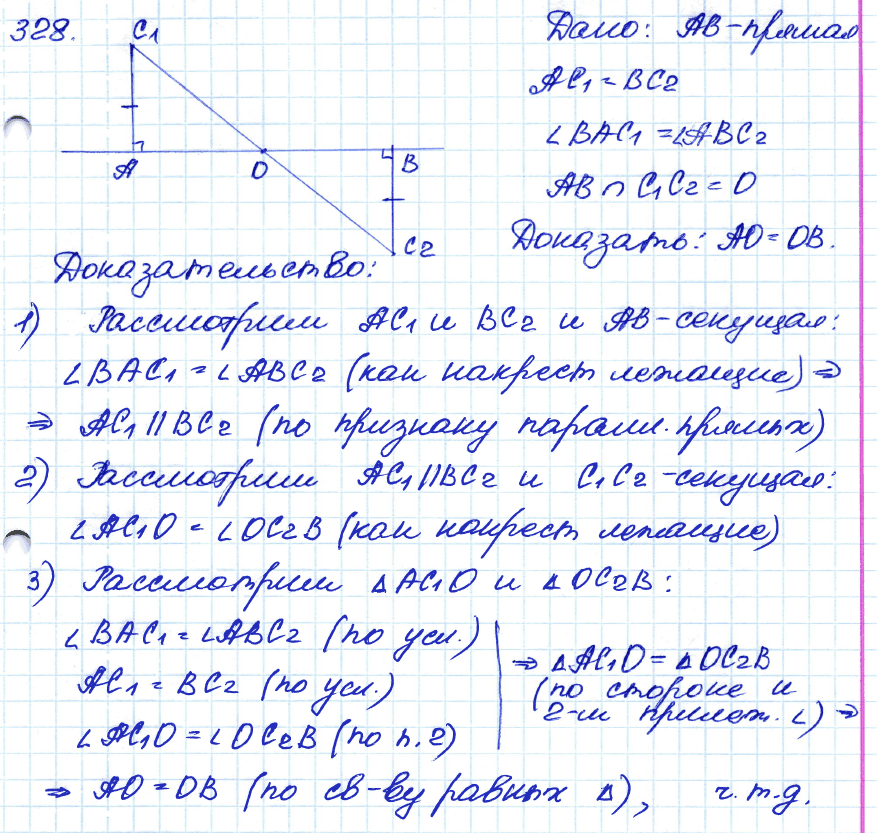 328.
C1
A
O
B
C2
Дано: AB-прямая
AC1 = BC2
∠BAC1 = ∠ABC2
AB ∩ C1C2 = O
Доказать: AO = OB.
Доказательство:
1) Рассмотрим AC1 и BC2 и AB-секущая:
∠BAC1 = ∠ABC2 (как накрест лежащие) ⇒
⇒ AC1 || BC2 (по признаку паралл. прямых)
2) Рассмотрим AC1 || BC2 и C1C2-секущая:
∠AC1O = ∠OC2B (как накрест лежащие)
3) Рассмотрим △AC1O и △OC2B:
∠BAC1 = ∠ABC2 (по усл.)
AC1 = BC2 (по усл.)
∠AC1O = ∠OC2B (по п.2)
⇒ △AC1O = △OC2B
(по стороне и
2-м прилеж. ∠) ⇒
⇒ AO = OB (по св-ву равных △), ч.т.д.